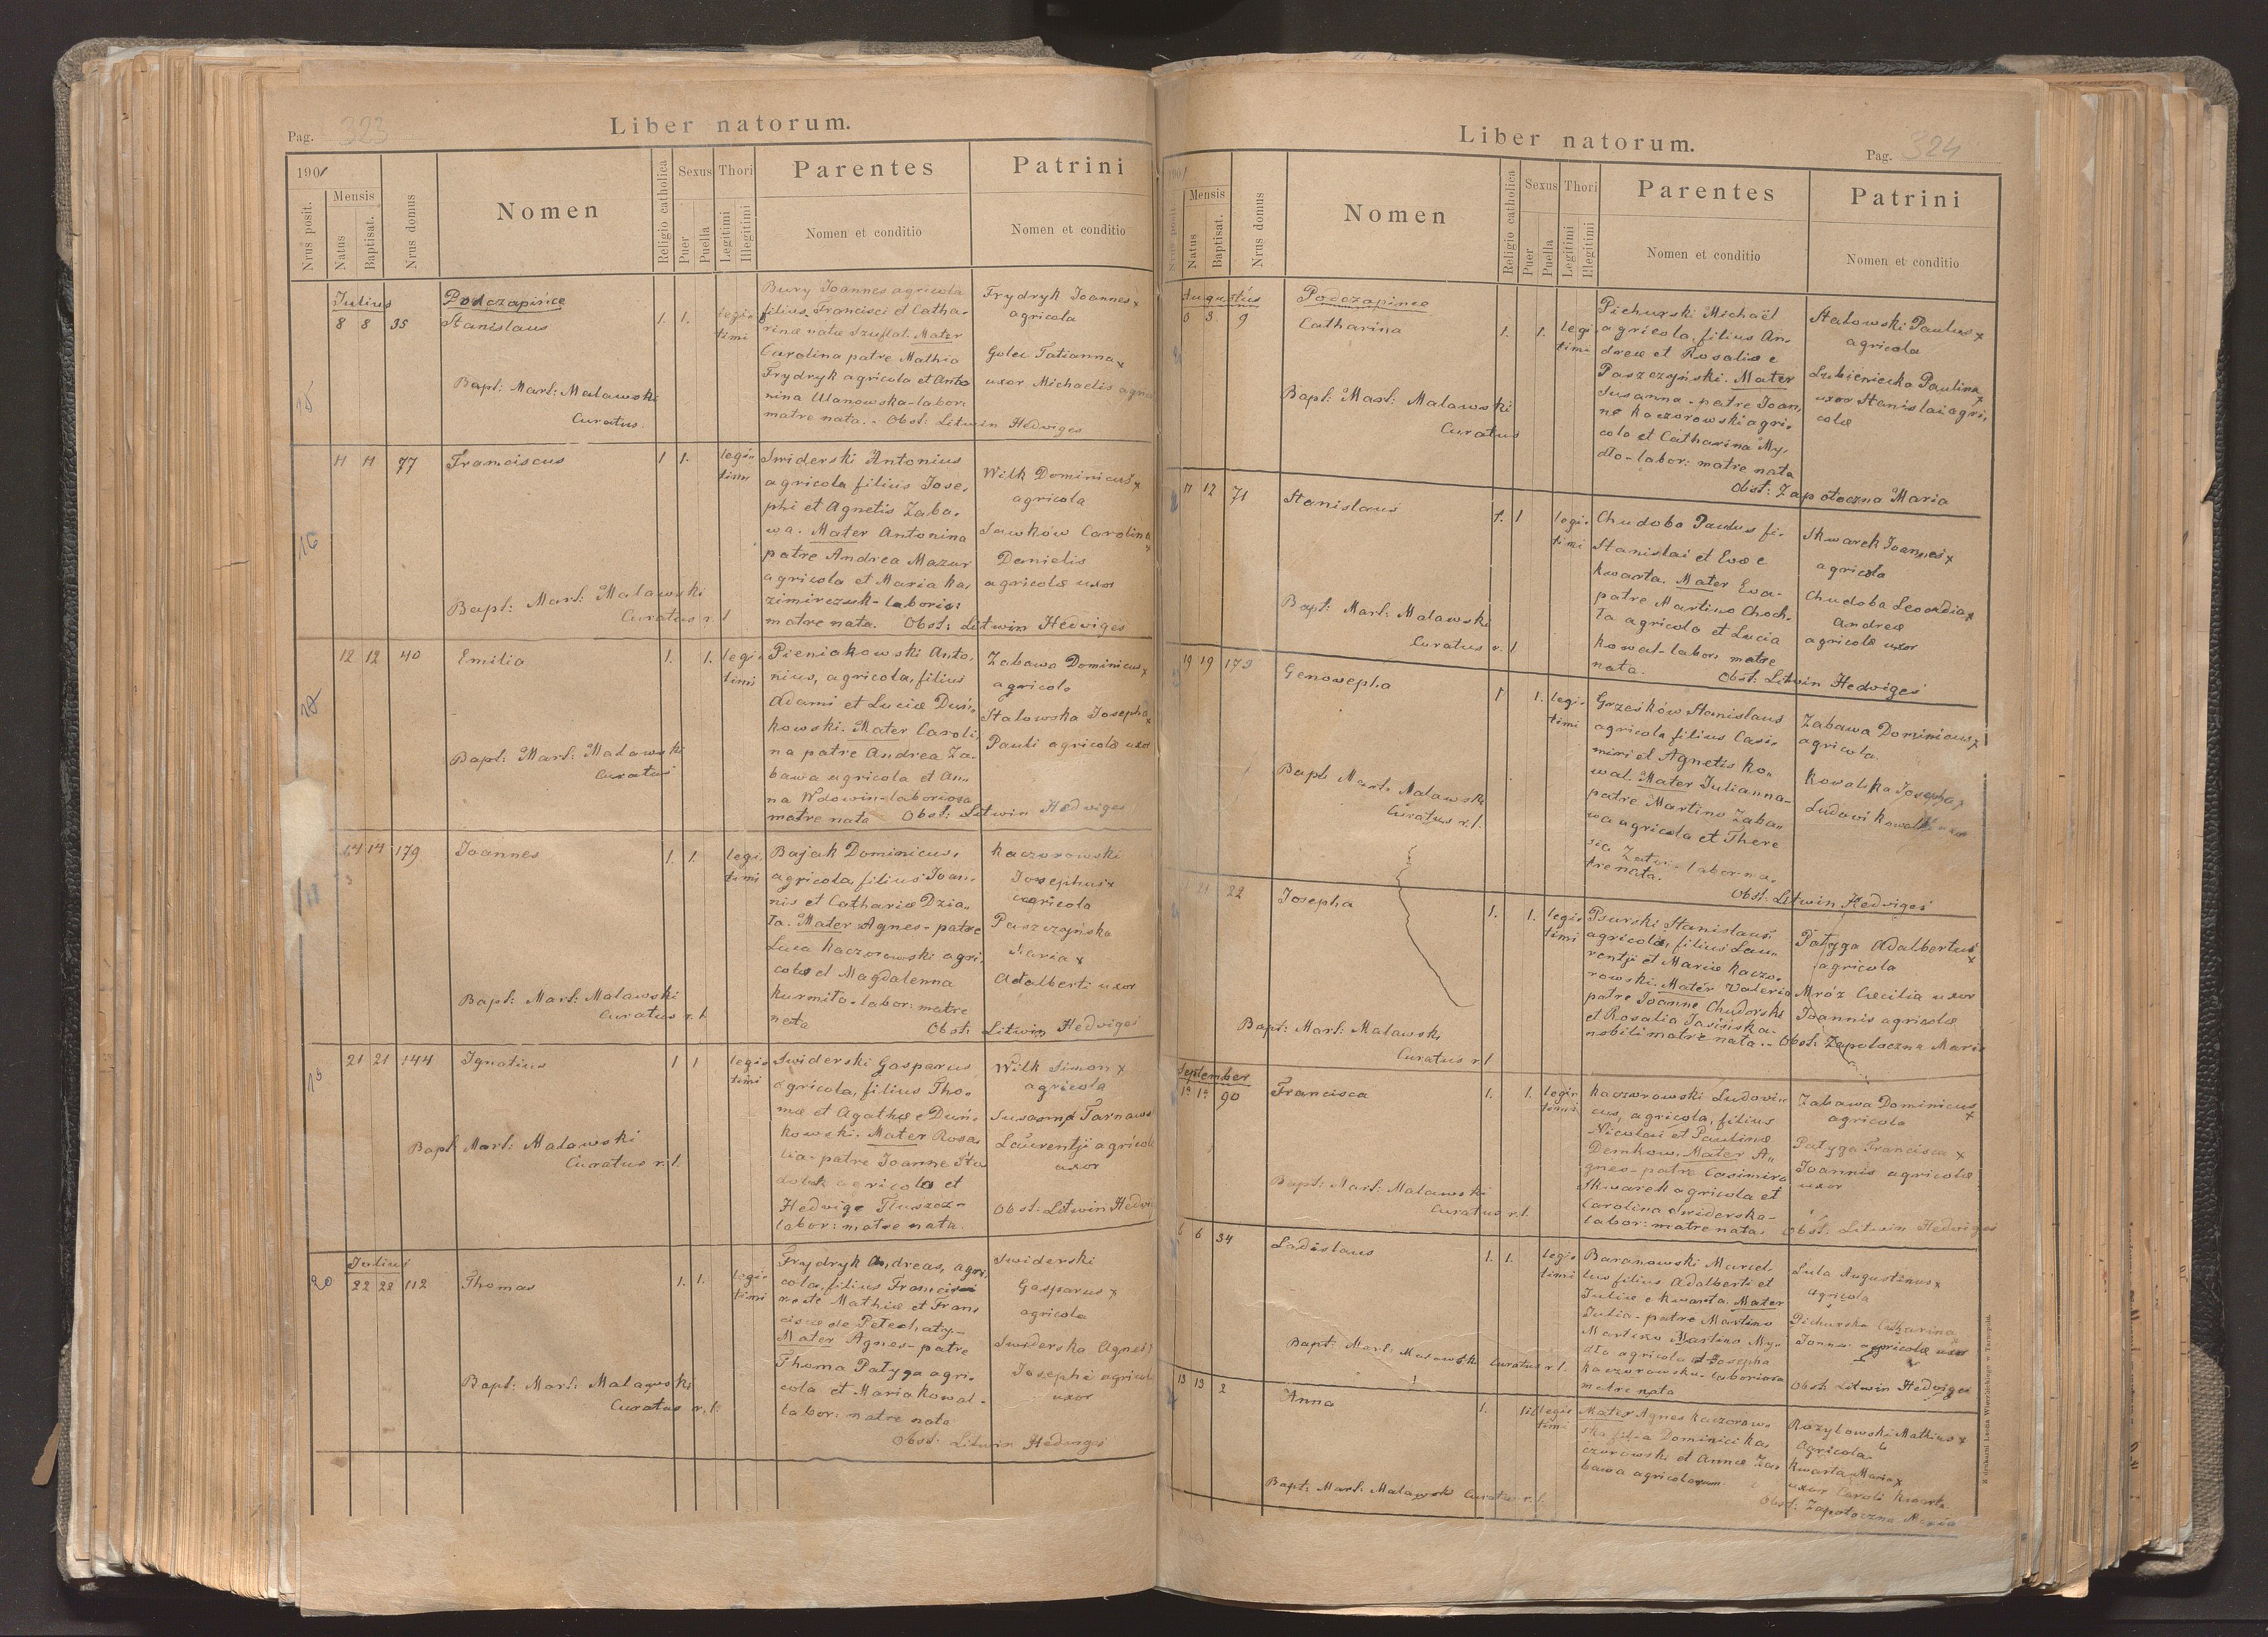 Pag. 323
Liber natorum.
1901
Nrus posit.
Mensis
Natus
Baptisat.
Nrus domus
Nomen
Religio catholica
Sexus
Puer
Puella
Thori
Legitimi
Illegitimi
Parentes
Nomen et conditio
Patrini
Nomen et conditio
Julius
Podczapińce
8 8 35
Stanislaus
1. 1.
legi-
timi
Bury Joannes agricola
filius Francisci et Catha-
rinæ natæ Szuflat. Mater
Carolina patre Mathia
Frydryk agricola et Anto
nina Ulanowska - labor:
matre nata. - Obst: Litwin Hedviges
Frydryk Joannes x
agricola
Golec Tatianna x
uxor Michaelis agric
Bapt: Mart: Malawski
Curatus.
15
11 11 77
Franciscus
1 1.
legi-
timi
Swiderski Antonius
agricola filius Jose,
phi et Agnetis Zaba,
wa. Mater Antonina
patre Andrea Mazur
agricola et Maria Ka,
zimirczuk - laborio:
matre nata. Obst: Litwin Hedviges
Wilk Dominicus x
agricola
Sawków Carolina
x
Danielis
agricolæ uxor
16
Bapt: Mart: Malawski
Curatus r. l
12 12 40
Emilia
1. 1.
legi-
timi
Pieniakowski Anto,
nius, agricola, filius
Adami et Luciæ Duń,
kowski. Mater Caroli,
na patre Andrea Za-
bawa agricola et An-
na Wdowin - laboriosa
matre nata Obst: Litwin Hedviges
Zabawa Dominicus x
agricola
Stalowska Josepha x
Pauli agricolæ uxor
Bapt: Mart: Malawski
Curatus
14 14 179
Joannes
1. 1.
legi.
timi
Bajak Dominicus,
agricola, filius Joan-
nis et Cathariæ Dzia,,
ła. Mater Agnes - patre
Luca Kaczorowski agri
cola et Magdalenna
Kurmito - labor: matre
nata Obst: Litwin Hedviges
Kaczorowski
Josephus x
agricola
Paszczyńska
Maria x
Adalberti uxor
Bapt: Mart: Malawski
Curatus r. l.
21 21 144
Ignatius
1 1
legi-
timi
Swiderski Gasparus
agricola, filius Tho-
mæ et Agathæ e Duń-
kowski. Mater Rosa,
lia - patre Joanne Sta
agricola et
Hedvige Tłuszcz -
labor: matre nata.
Wilk Simon x
agricola
Susanna Tarnaws
Laurentji agricolæ
uxor
Obst: Litwin Hedvi
19
Bapt Mart: Malawski
Curatus r. l.
20
Julius
22 22 112
Thomas
1. 1.
legi-
timi
Frydryk Andreas, agri,
cola, filius Francisci
Mathiæ et Fran
ciscæ de Petechaty -
Mater Agnes - patre
Thoma Patyga agri-
cola et Maria Kowal -
labor: matre nata
Obst: Litwin Hedviges
Swiderski
Gasparus x
agricola
Swiderska Agnes
Josephi agricolæ
uxor
Bapt: Mart: Malawski
Curatus r. l.
Liber natorum.
Pag. 324
1901
Nrus posit.
Mensis
Natus
Baptisat.
Nrus domus
Nomen
Religio catholica
Sexus
Puer
Puella
Thori
Legitimi
Illegitimi
Parentes
Nomen et conditio
Patrini
Nomen et conditio
Augustus
Podczapince
3 3. 9
Catharina
1. 1.
legi.
timi
Pichurski Michaël
agricola, filius An,
dreæ et Rosaliæ e
Paszczyński. Mater
Susanna - patre Joan,
ne Kaczorowski agri,
cola et Catharina My,
dło - labor: matre nata
Obst: Zapotoczna Maria
Stalowski Paulus x
agricola
Lubieniecka Paulina x
uxor Stanislai agri,
colæ
Bapt: Mart: Malawski
Curatus
11 12 71
Stanislaus
1. 1
legi-
timi
Chudoba Paulus fi-
Stanislai et Evæ e
Kwarta. Mater Eva -
patre Martino Choch-
ła agricola et Lucia
Kowal - labor: matre
nata. Obst: Litwin Hedviges
Skwarek Joannes x
agricola
Chudoba Leocadia x
Andreæ
agricolæ uxor
Bapt: Mart: Malawski
Curatus r. l
19 19 173
Genowepha
1 1.
legi-
timi
Grześków Stanislaus
agricola filius Casi-
miri et Agnetis Ko,,
wal. Mater Julianna -
patre Martino Zaba,,
wa agricola et There
sia Zator - labor: ma,
tre nata.
Obst: Litwin Hedviges
Zabawa Dominicus x
agricola.
Kowalska Josepha x
Ludovi Kowalski uxor
Bapt Mart: Malawski
Curatus r. l.
21 22
Josepha
1. 1.
legi-
timi
Psurski Stanislaus
agricola, filius Lau-
rentji et Mariæ Kaczo-
rowski. Mater Valeria
patre Joanne Chudorski
et Rosalia Jasińska -
nobili matre nata. - Obst: Zapotoczna Maria
Patyga Adalbertus x
agricola
Mróz Cæcilia uxor
Joannis agricolæ
Bapt: Mart: Malawski
Curatus r. l
September
1a 1a 90
Francisca
1. 1.
legi-
timi
Kaczorowski Ludovi-
cus, agricola, filius
Nicolai et Paulinæ
Demkow. Mater A,,
gnes - patre Casimiro
Skwarek agricola et
Carolina Swiderska -
labor: matre nata. Obst: Litwin Hedviges
Zabawa Dominicus x
agricola
Patyga Francisca x
Joannis agricolæ
uxor
Bapt: Mart: Malawski
Curatus r. l.
6 6 34
Ladislaus
1. 1.
legi-
timi
Baranowski Marcel
lus filius Adalberti et
Juliæ e Kwarta. Mater
Julia - patre Martino
Martino My-
dło agricola et Josepha
Kaczorowska - laboriosa
matre nata
Lula Augustinus x
agricola
Pichurska Catharina x
agricolæ uxor
Obst: Litwin Hedviges
Bapt: Mart: Malawski Curatus r. l.
13 13 2
Anna
1.
legi-
timi
Mater Agnes Kaczorow-
ska filia Dominici Ka,
czorowski et Annæ Za-
bawa agricolarum
Rozylowski Mathias x
agricola
Kwarta Maria x
uxor Caroli Kwarta
Obst: Zapotoczna Maria
Bapt: Mart: Malawski Curatus r. l.